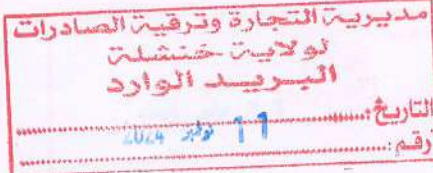 مديرية التجارة وترقية الصادرات
لولاية خنشلة
البريد الوارد
التاريخ: 11 نوفمبر 2024
رقم: